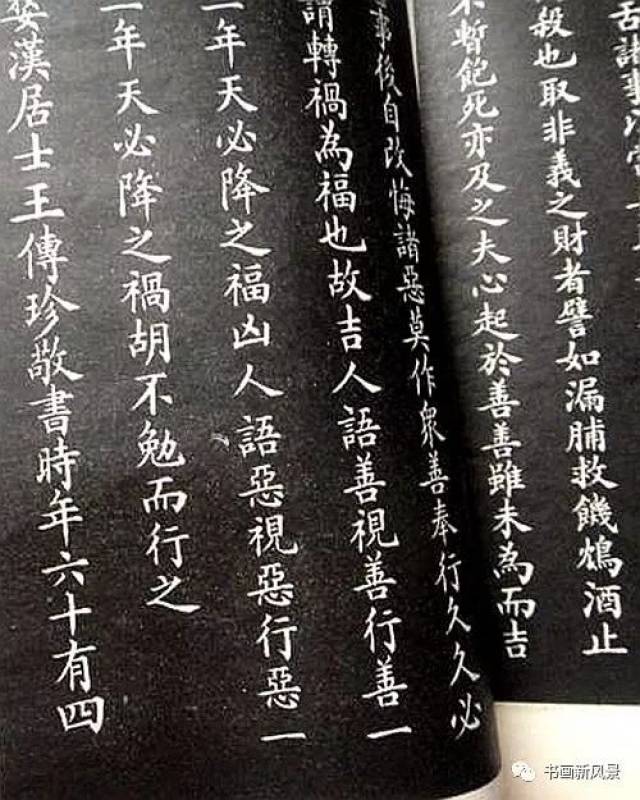 舌諸事以當
殺也取非義之財者譬如漏脯救饑鴆酒止
不暫飽死亦及之夫心起於善善雖未為而吉
事後自改悔諸惡莫作眾善奉行久久必
謂轉禍為福也故吉人語善視善行善一
年天必降之福凶人語惡視惡行惡一
年天必降之禍胡不勉而行之
漢居士王傳珍敬書時年六十有四
书画新风景